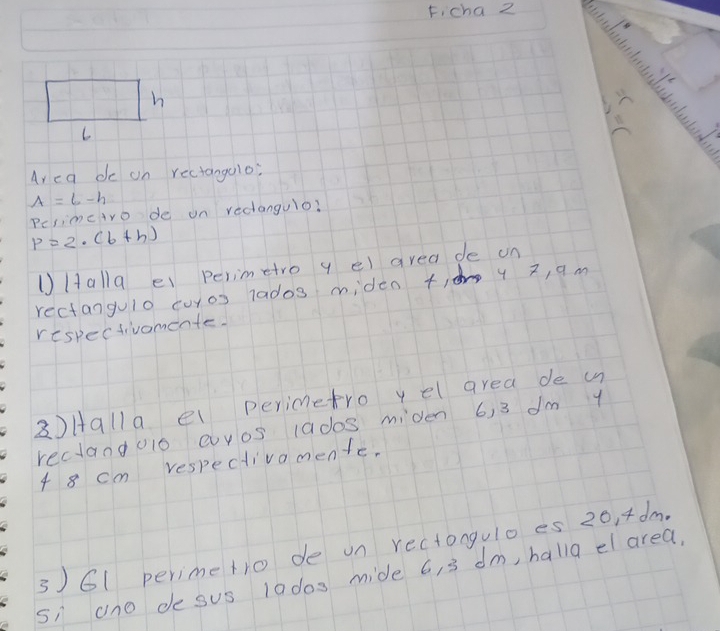 Ficha 2
h
b
Area de un rectangulo:
A = b - h
Perimetro de un rectangulo:
P = 2 . (b + h)
1) Halla el perimetro y el area de un
rectangulo cuyos lados miden y 7,9 m
respectivamente.
2) Halla el perimetro y el area de un
rectangulo cuyos lados miden 6,3 dm y
48 cm respectivamente.
3) El perimetro de un rectangulo es 20,4 dm.
Si uno de sus lados mide 6,3 dm, halla el area.